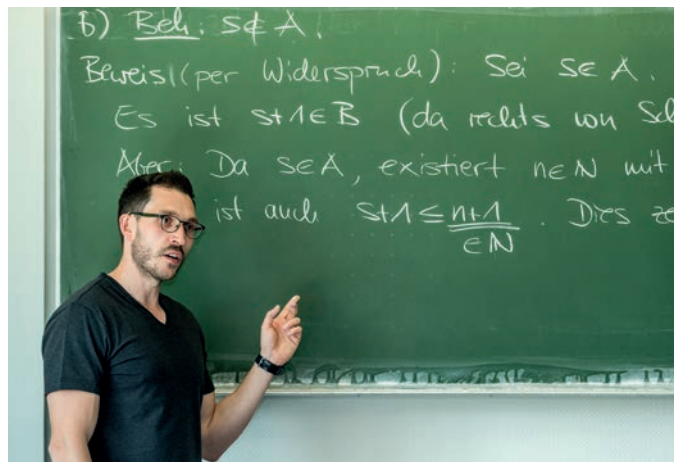 b) Beh.: s∉A.
Beweis (per Widerspruch): Sei s∈A.
Es ist s+1∈B (da rechts von Sch
Aber: Da s∈A, existiert n∈ℕ mit
ist auch s+1≤n+1. Dies ze
∈ℕ